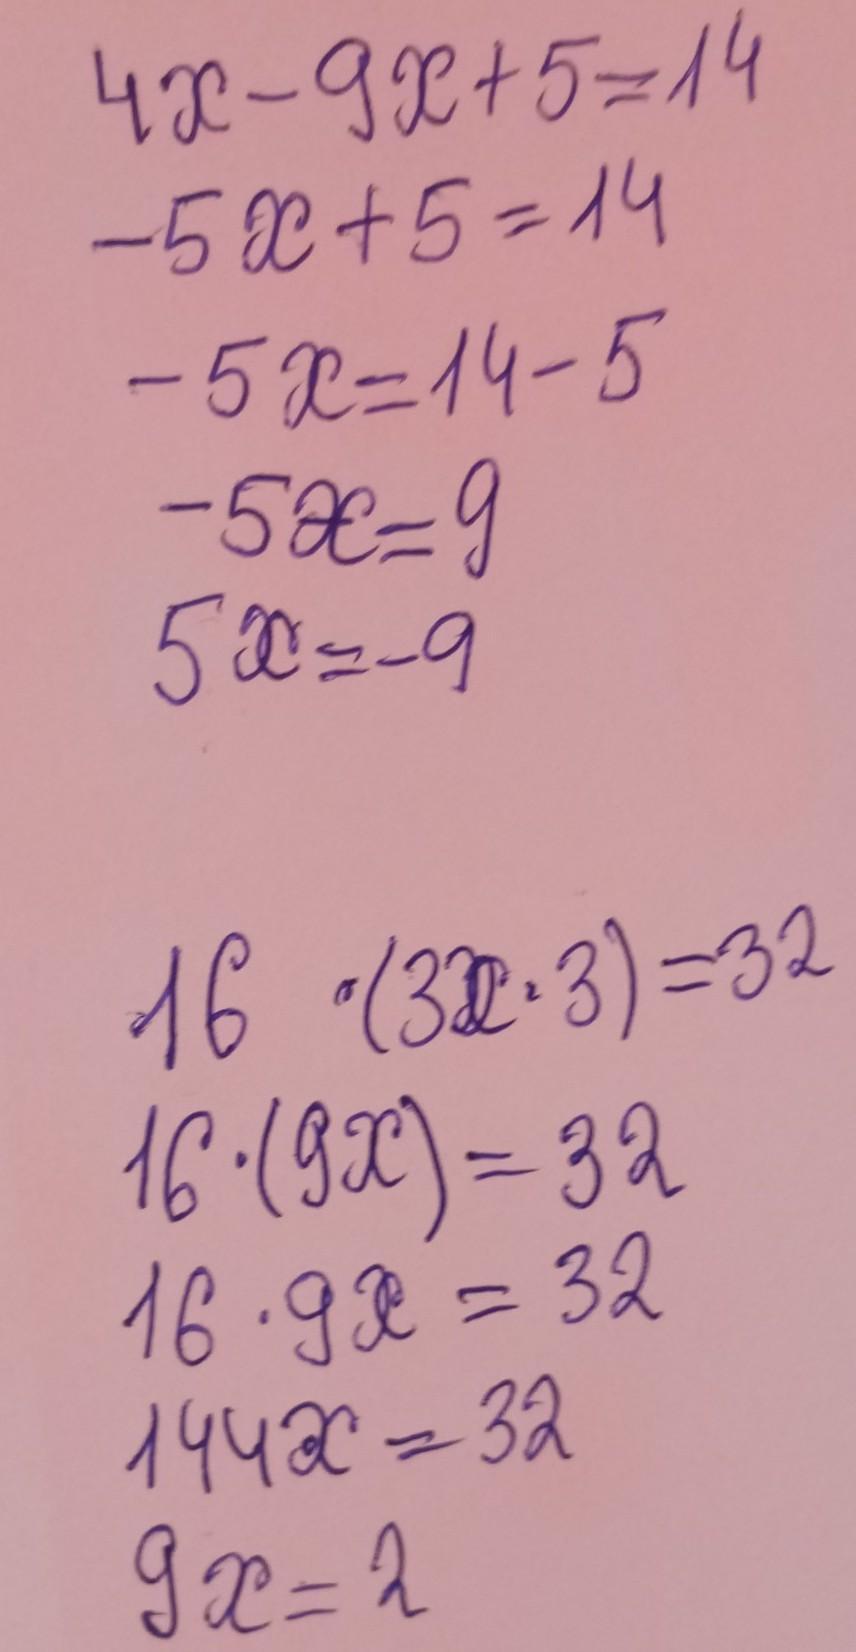 4x-9x+5=14
-5x+5=14
-5x=14-5
-5x=9
5x=-9
16 ·(3x·3)=32
16·(9x)=32
16·9x=32
144x=32
9x=2